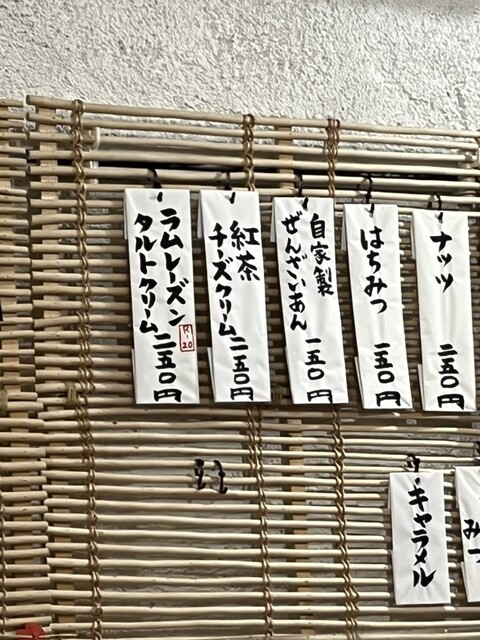 ラムレーズン
タルトクリーム 二五〇円
R-20
紅茶
チーズクリーム 二五〇円
自家製
ぜんざいあん 一五〇円
はちみつ 一五〇円
ナッツ 二五〇円
キャラメル
みつ